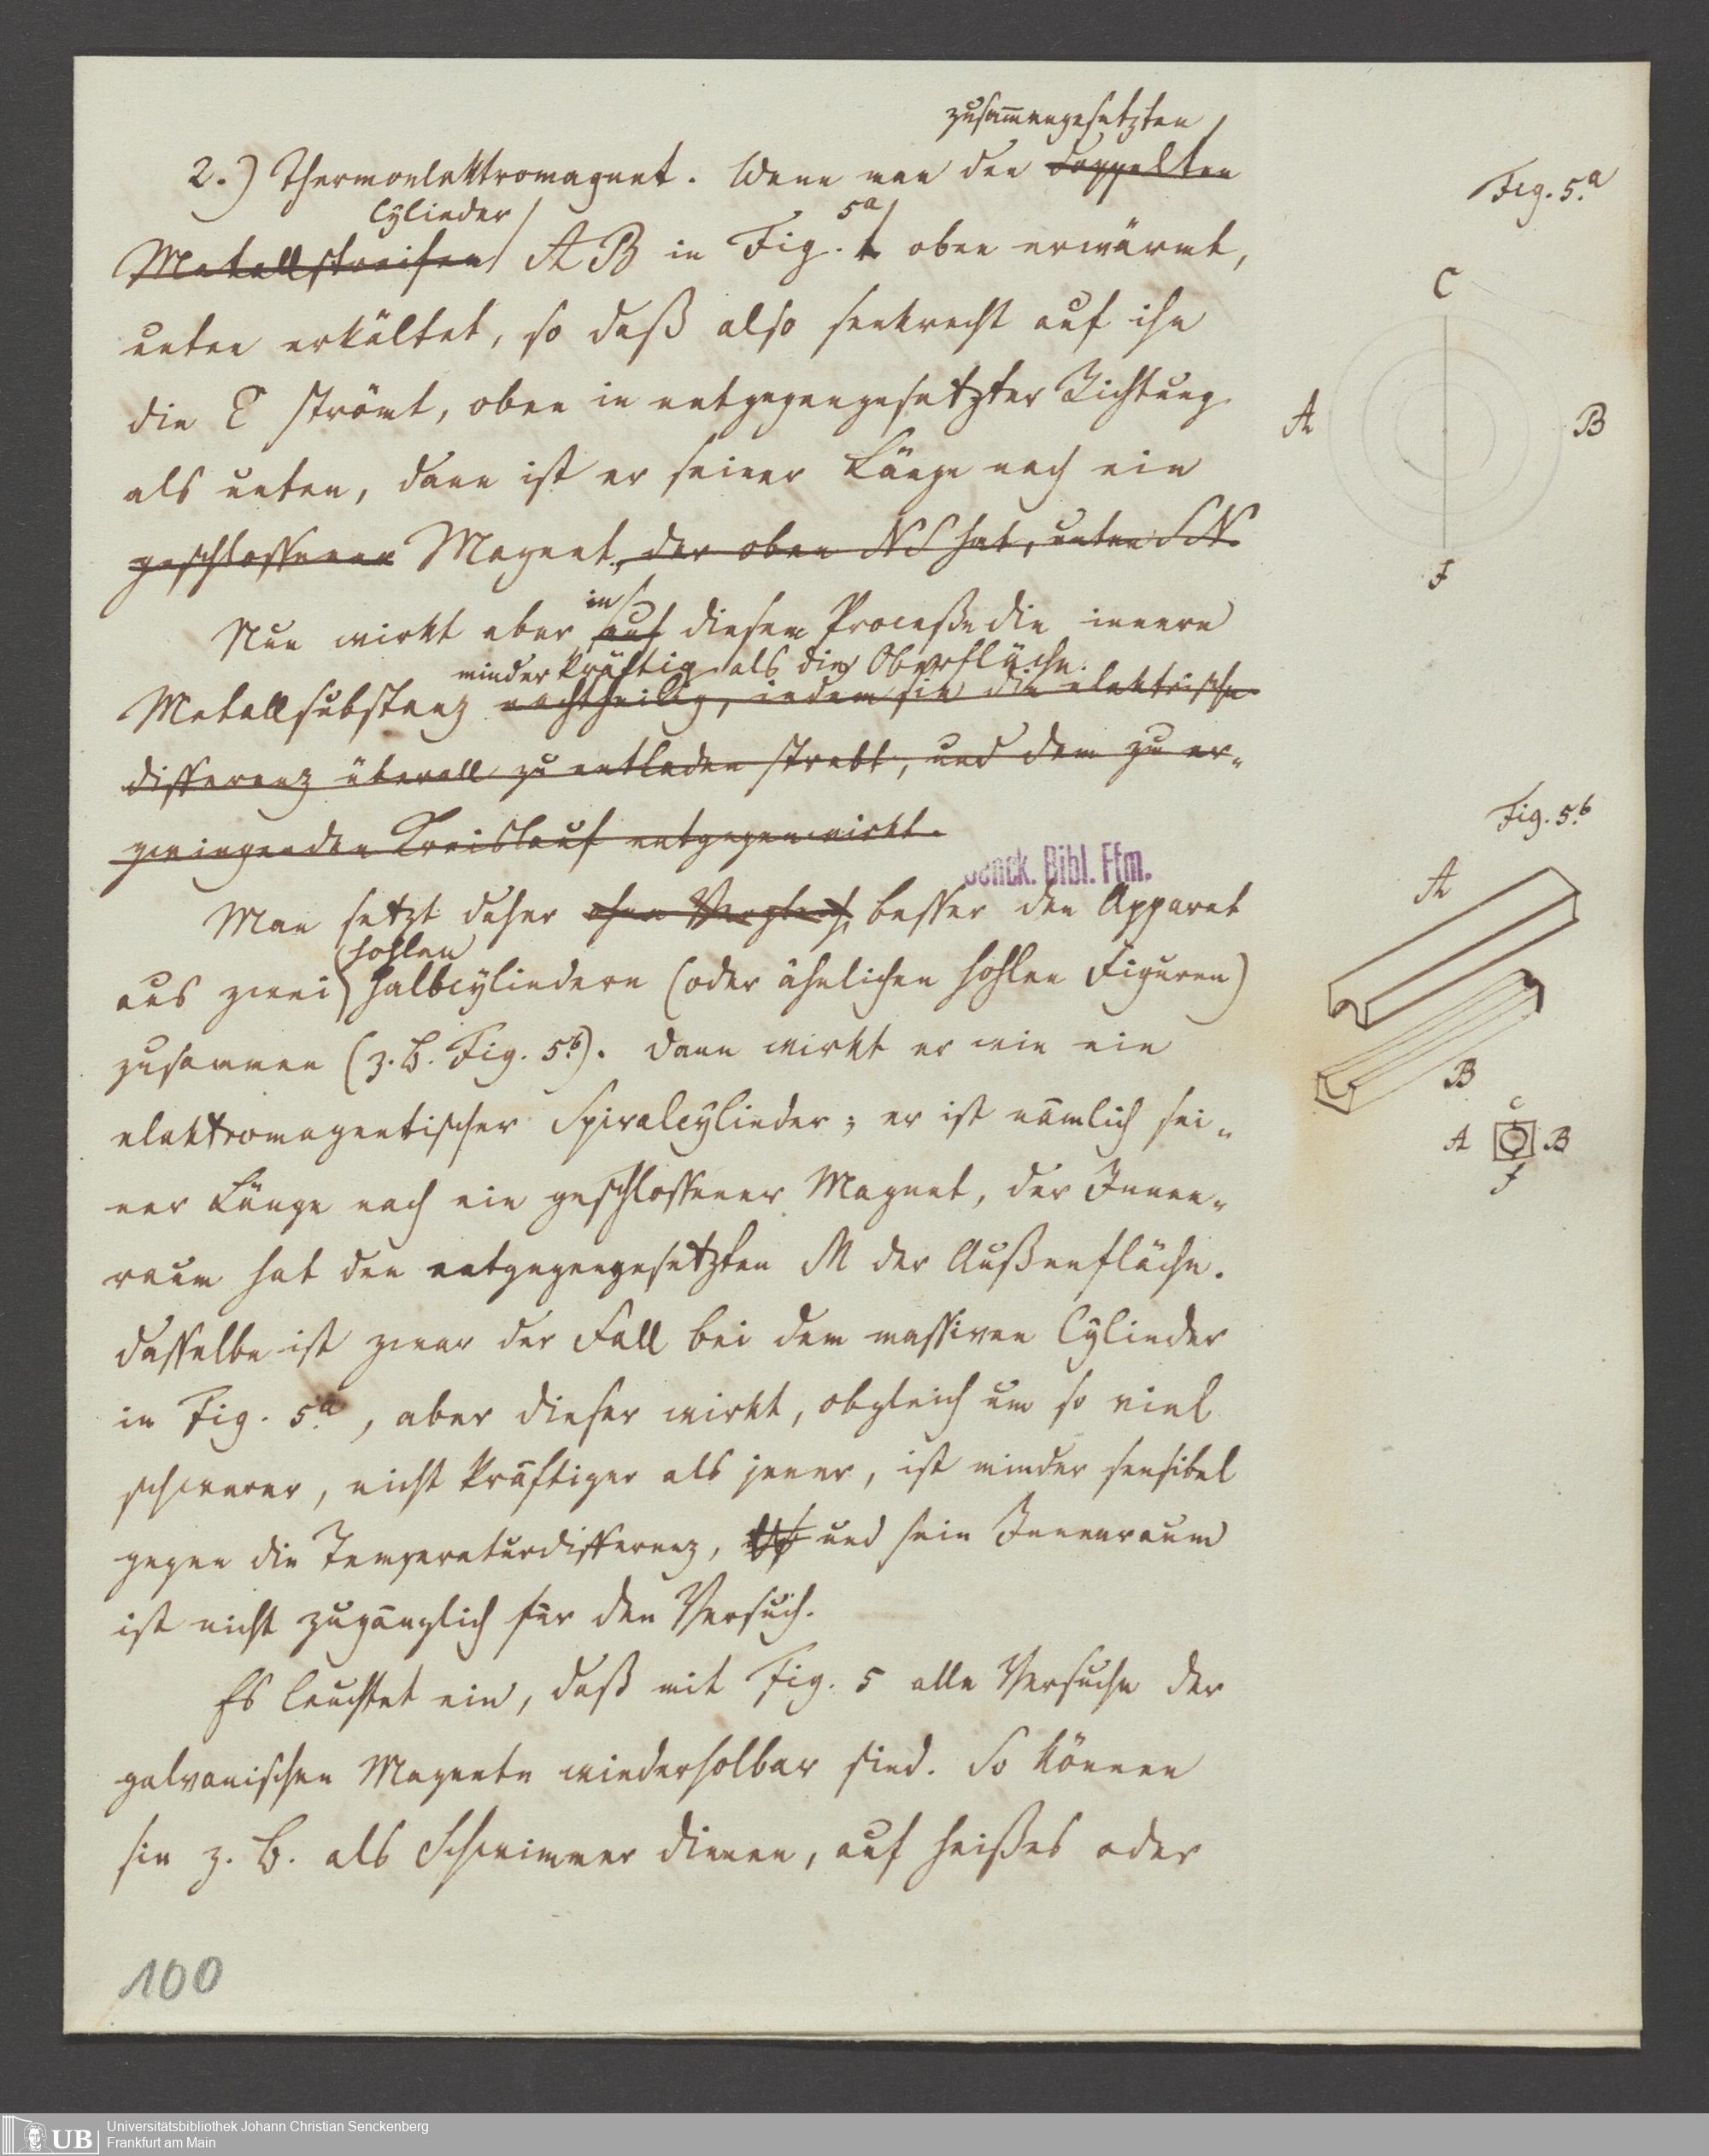 zusam̄engesetzten
2.) Thermoelektromagnet. Wenn man den doppelten
Cylinder
5a
Metallstreifen A B in Fig. 1 oben erwärmt,
unten erkältet, so daß also senkrecht auf ihn
die E strömt, oben in entgegengesetzter Richtung
als unten, dann ist er seiner Länge nach ein
geschlossener Magnet, der oben NS hat, unten SN.
in
Nun wirkt aber auf diesem Processe die innere
minder kräftig als die Oberfläche.
Metallsubstanz nachtheilig, indem sie die elektrische
Differenz überall zu entladen strebt, und dem zu er-
zwingenden Kreislauf entgegenwirkt.
Senck. Bibl. Ffm.
Man setzt daher ohne Vergleich besser den Apparat
hohlen
aus zwei Halbcylindern (oder ähnlichen hohlen Figuren)
zusammen (z. B. Fig. 5b). Dann wirkt er wie ein
elektromagnetischer Spiralcylinder; er ist nämlich sei-
ner Länge nach ein geschlossener Magnet, der Innen-
raum hat den entgegengesetzten M der Außenfläche.
Dasselbe ist zwar der Fall bei dem massiven Cylinder
in Fig. 5a, aber dieser wirkt, obgleich um so viel
schwerer, nicht kräftiger als jener, ist minder sensibel
gegen die Temperaturdifferenz, und sein Innenraum
ist nicht zugänglich für den Versuch.
Es leuchtet ein, daß mit Fig. 5 alle Versuche der
galvanischen Magnete wiederholbar sind. So können
sie z. B. als Schwimmer dienen, auf heißes oder
100
Fig. 5.a
C
A B
F
Fig. 5.b
A
B
C
A B
F
UB Universitätsbibliothek Johann Christian Senckenberg
Frankfurt am Main